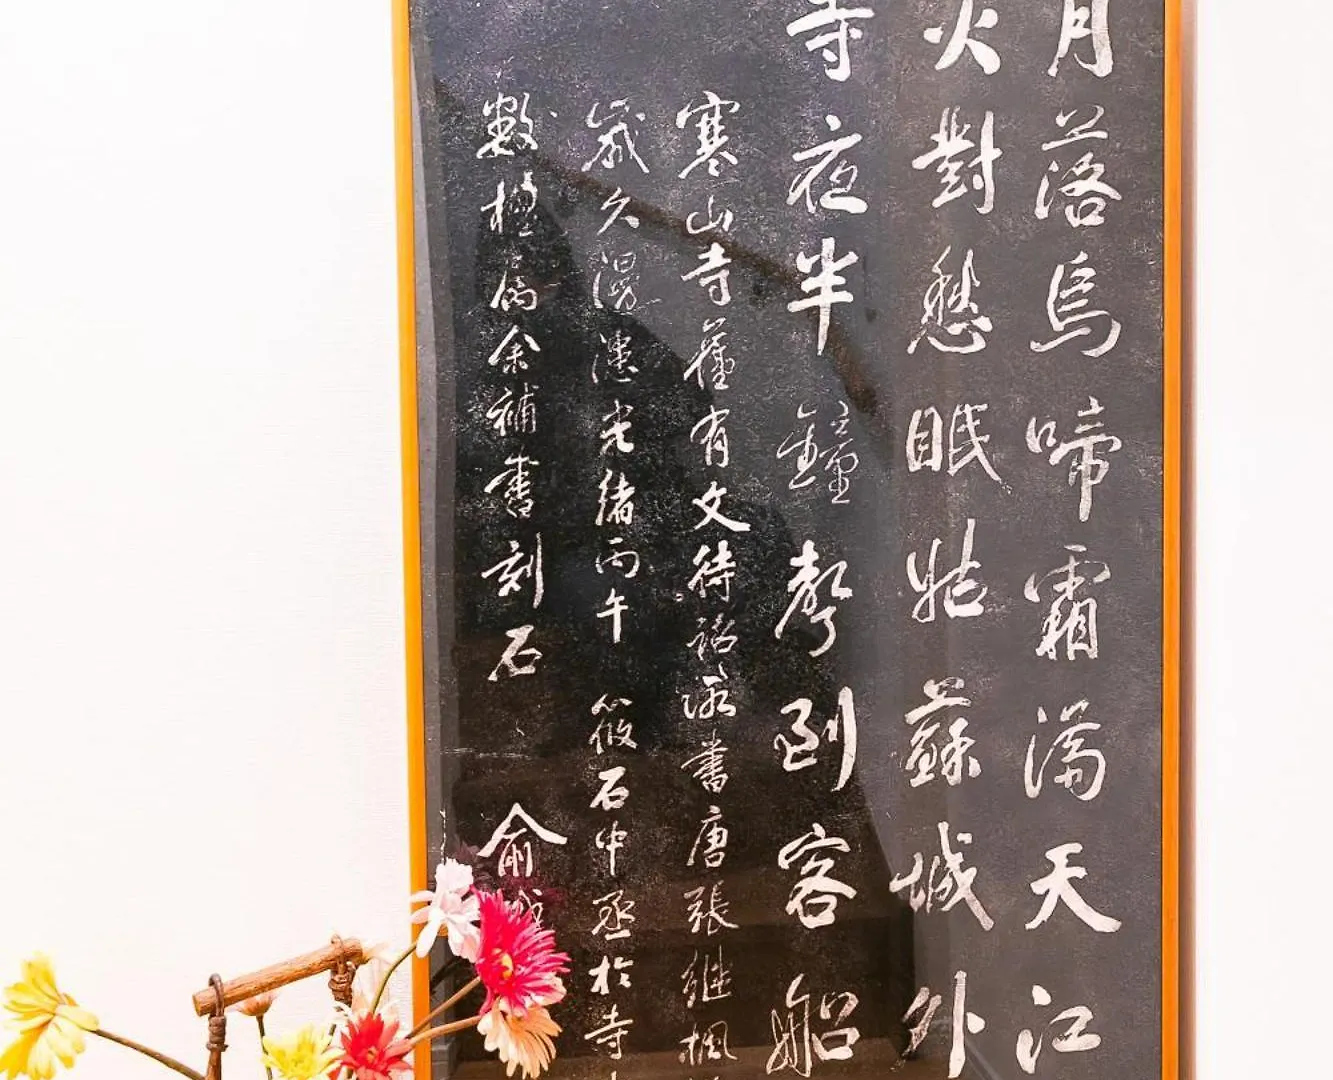 月落烏啼霜滿天江
火對愁眠姑蘇城外
寺夜半鐘聲到客船
寒山寺舊有文待詔所書唐張繼楓
歲久漫漶光緒丙午 筱石中丞於寺
數楹屬余補書刻石
俞